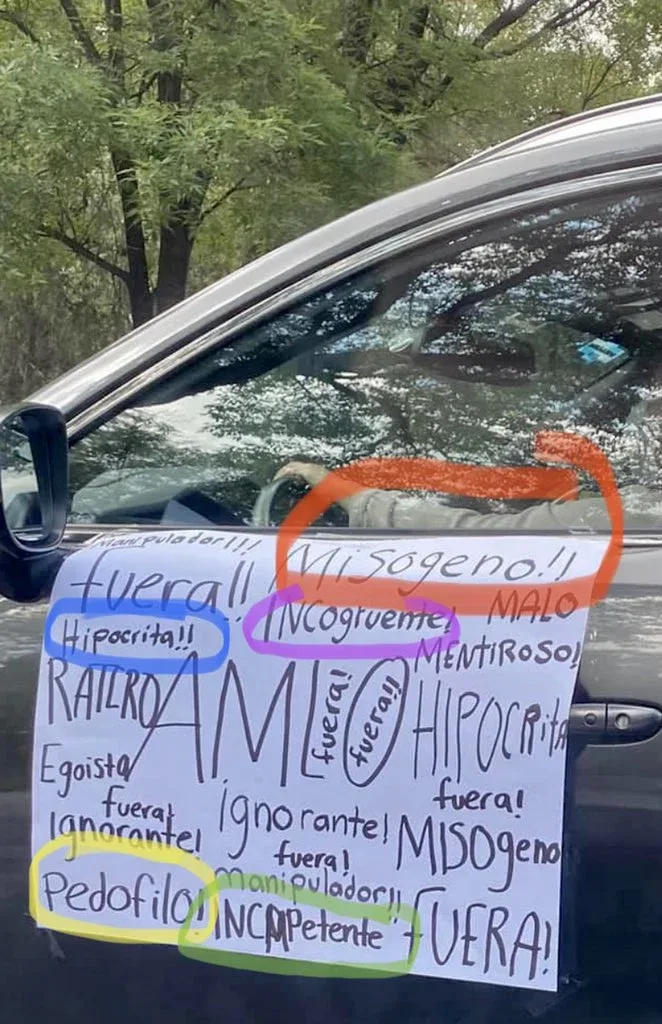 Manipulador!!!
Misogeno!!
fuera!!
INCogruente!
MALO
Hipocrita!!
MENTIROSO!
RATERO
AMLO
fuera!
fuera!!
HIPOCRita
Egoista
fuera!
Ignorante!
ignorante!
fuera!
MISOgeno
fuera!
Pedofilo!
manipulador!!
INCOMPetente
FUERA!